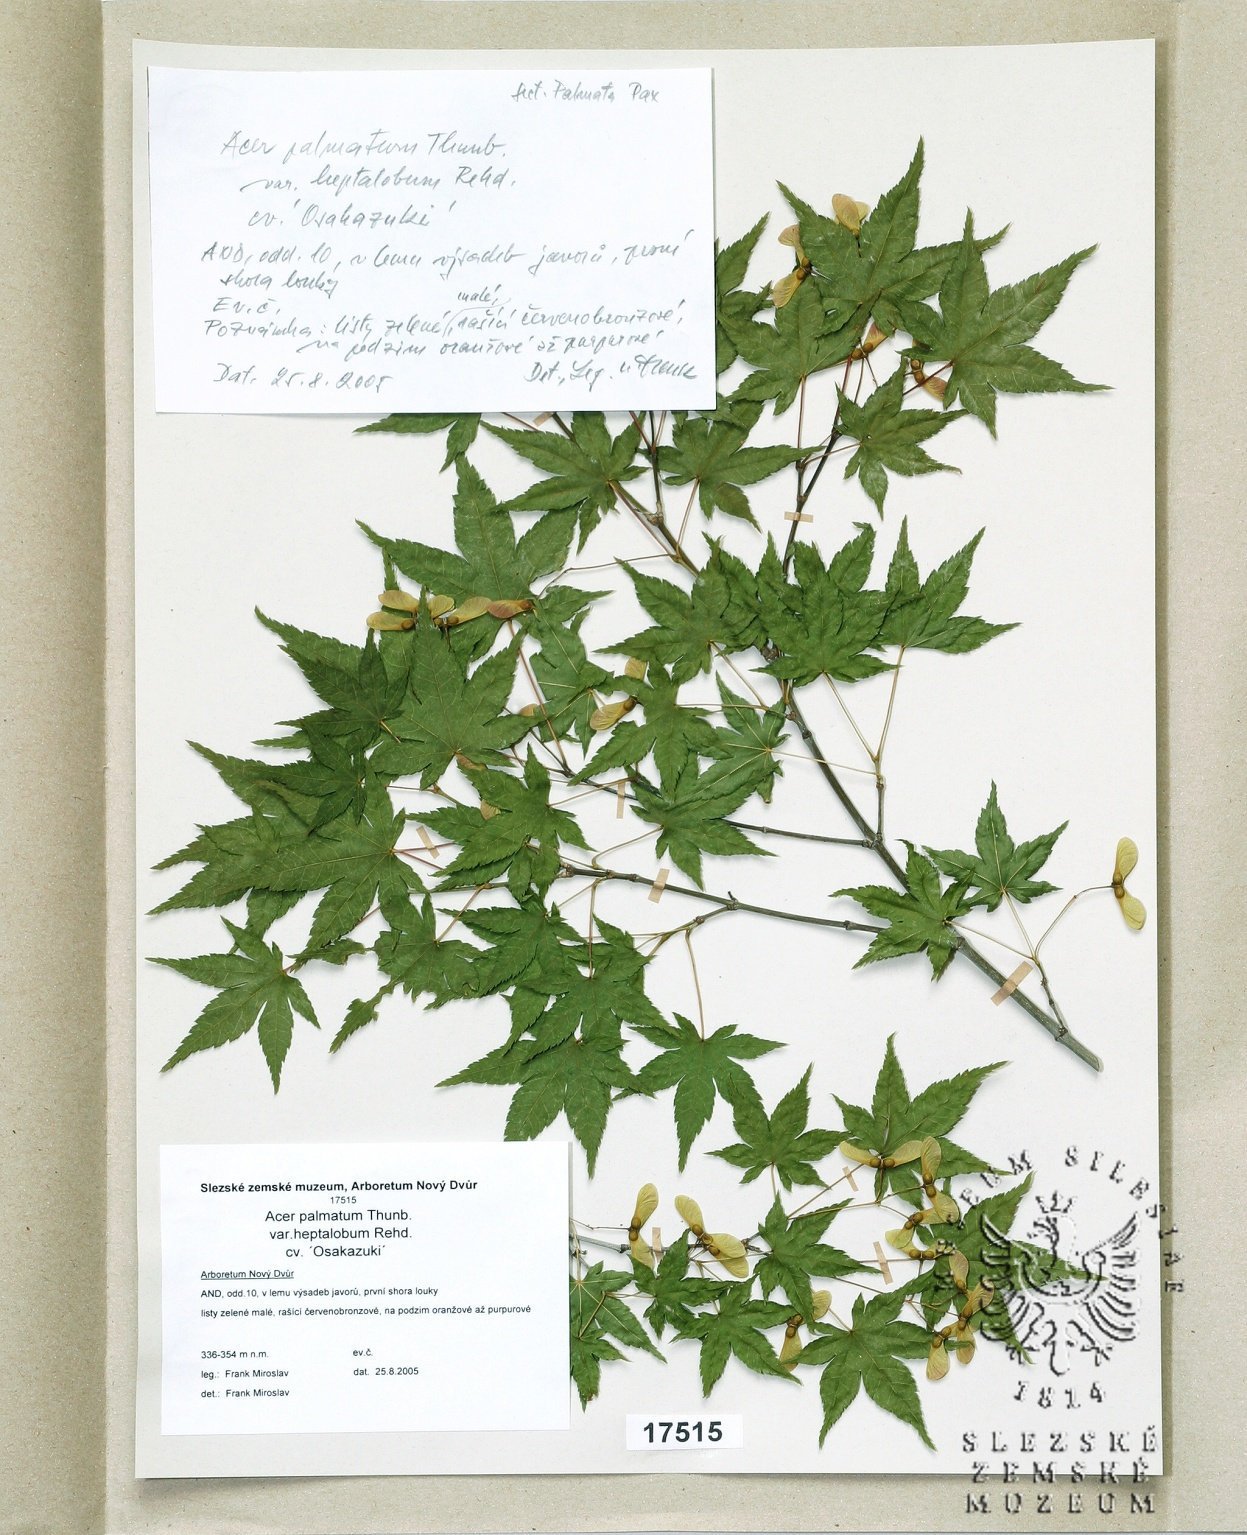 sect. Palmata Pax
Acer palmatum Thunb.
var. heptalobum Rehd.
cv. ´Osakazuki´
AND, odd. 10, v lemu výsadeb javorů, první
shora louky
Ev.č.
malé,
Poznámka: listy zelené, rašící červenobronzové,
na podzim oranžové až purpurové
Dat. 25.8.2005 Det., Leg. M Frank
Slezské zemské muzeum, Arboretum Nový Dvůr
17515
Acer palmatum Thunb.
var.heptalobum Rehd.
cv. ´Osakazuki´
Arboretum Nový Dvůr
AND, odd.10, v lemu výsadeb javorů, první shora louky
listy zelené malé, rašící červenobronzové, na podzim oranžové až purpurové
336-354 m n.m. ev.č.
leg.: Frank Miroslav dat. 25.8.2005
det.: Frank Miroslav
17515
MUSEUM SILESIAE
1814
SLEZSKÉ
ZEMSKÉ
MUZEUM